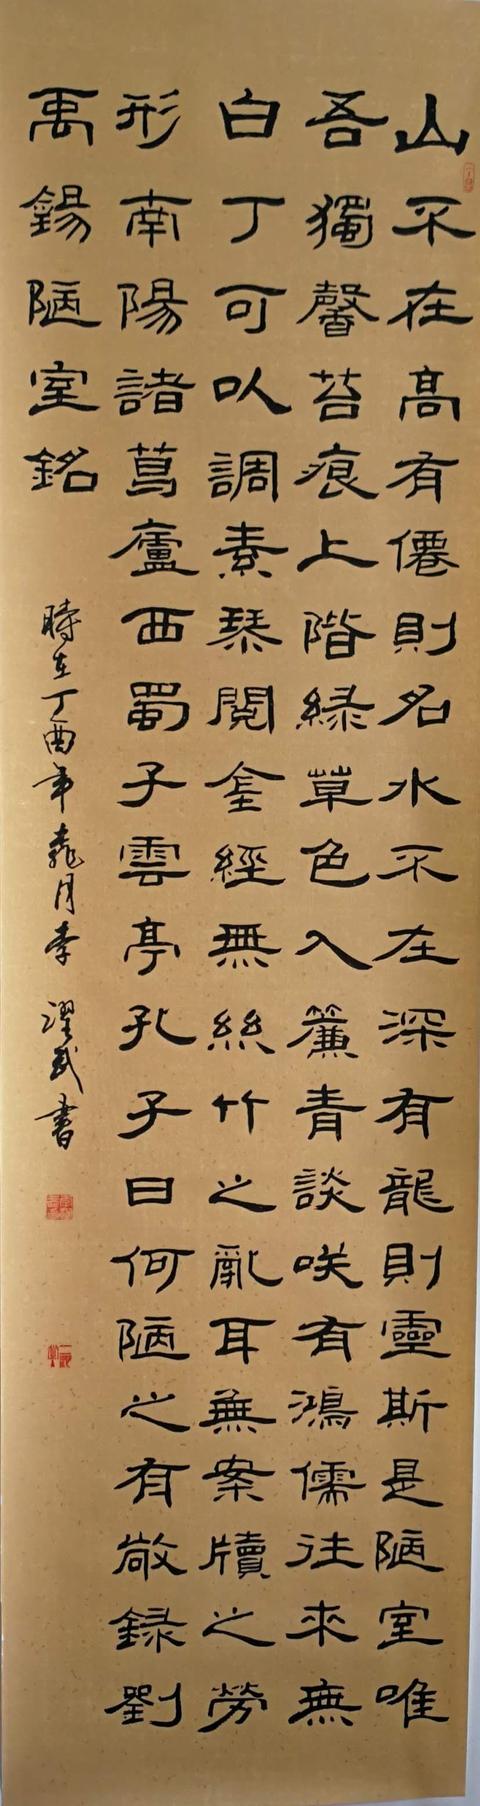 山不在高有僊則名水不在深有龍則靈斯是陋室唯
吾獨馨苔痕上階緑草色入簾青談咲有鴻儒往來無
白丁可以調素琴閱金經無絲竹之亂耳無案牘之勞
形南陽諸葛廬西蜀子雲亭孔子曰何陋之有敬録劉
禹錫陋室銘
時在丁酉年月李濯武書